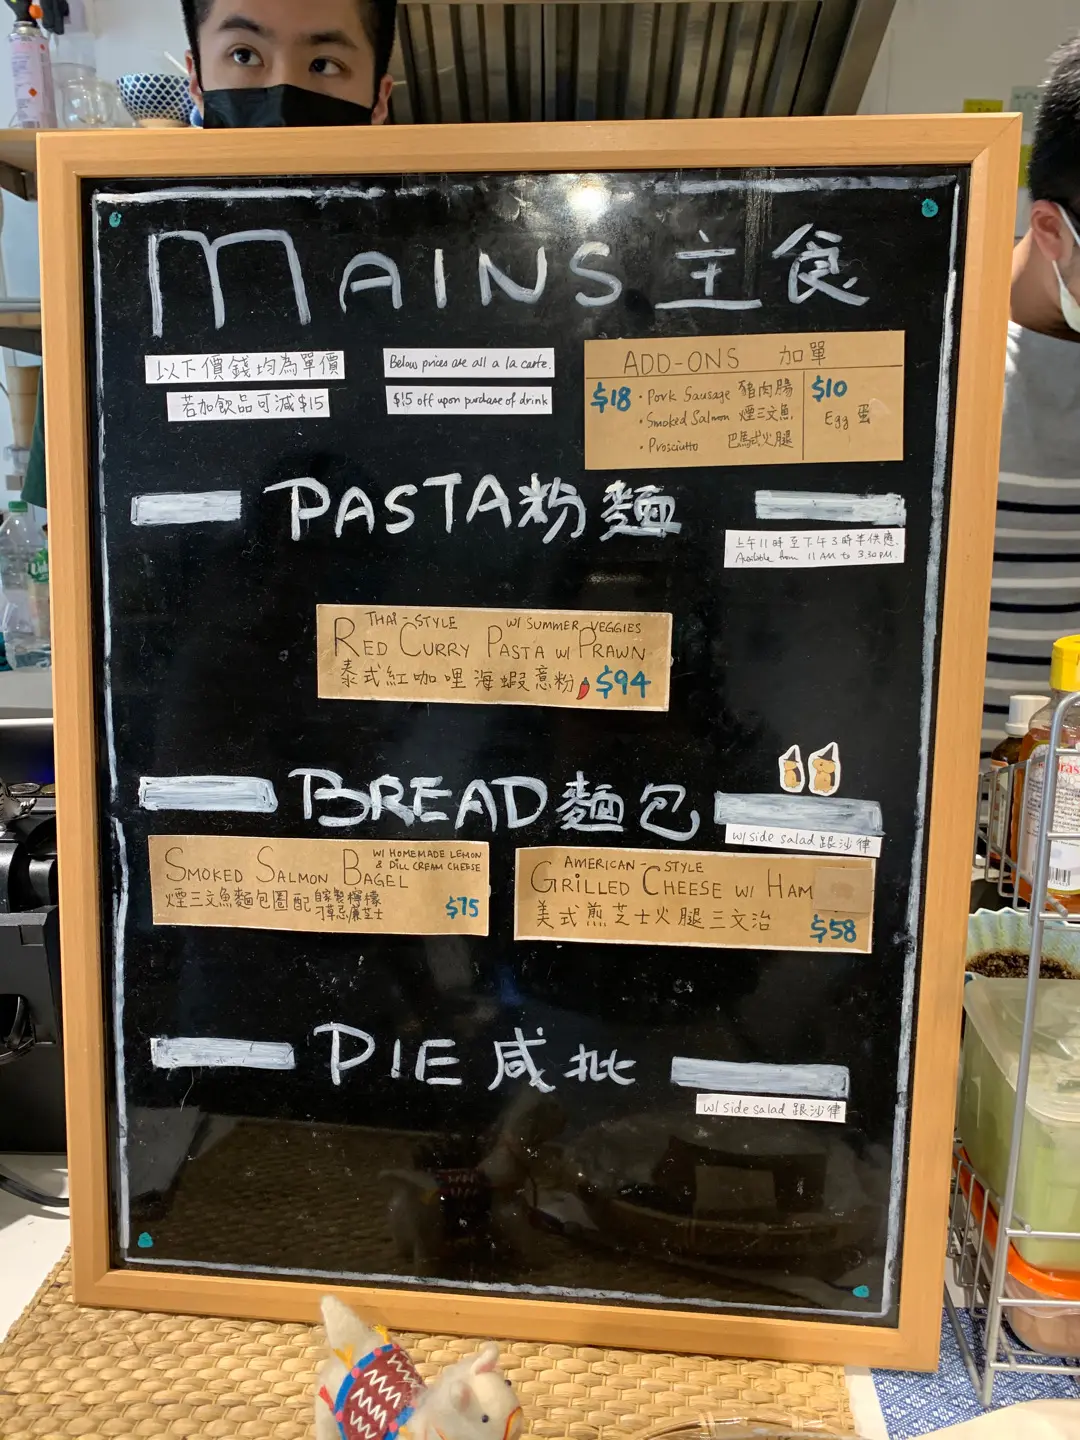 MAINS 主食
以下價錢均為單價
若加飲品可減$15
Below prices are all a la carte.
$15 off upon purchase of drink
ADD-ONS 加單
$18 · Pork Sausage 豬肉腸
· Smoked Salmon 煙三文魚
· Prosciutto 巴馬式火腿
$10
Egg 蛋
PASTA 粉麵
上午11時至下午3時半供應.
Available from 11 AM to 3.30 PM.
THAI-STYLE W/ SUMMER VEGGIES
RED CURRY PASTA W/ PRAWN
泰式紅咖哩海蝦意粉 $94
BREAD 麵包
w/ side salad 跟沙律
SMOKED SALMON BAGEL
W/ HOMEMADE LEMON
& DILL CREAM CHEESE
煙三文魚麵包圈配 自家製檸檬
刁草忌廉芝士
$75
AMERICAN-STYLE
GRILLED CHEESE W/ HAM
美式煎芝士火腿三文治
$58
PIE 咸批
w/ side salad 跟沙律